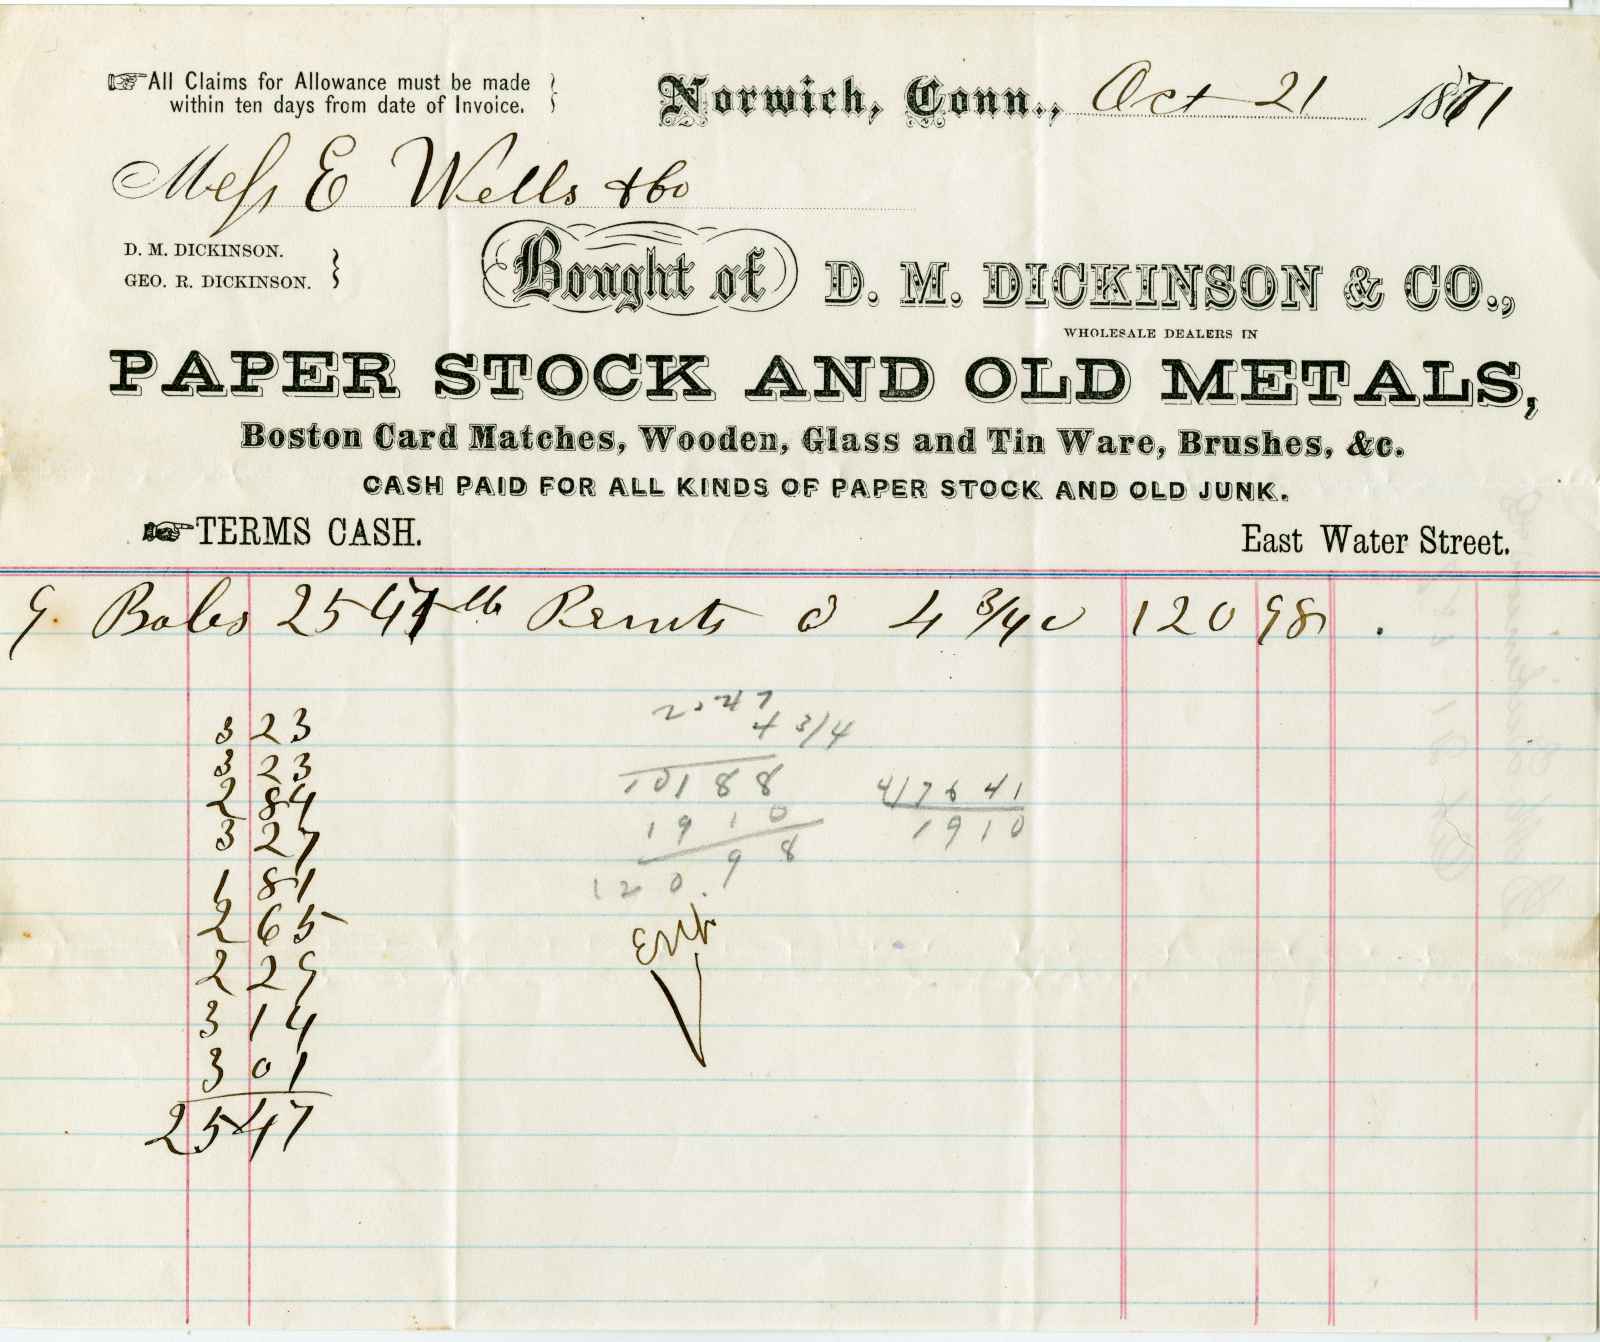 All Claims for Allowance must be made
within ten days from date of Invoice.
Norwich, Conn., Oct 21 1871
Mess E Wells & Co
D. M. DICKINSON.
GEO. R. DICKINSON.
Bought of D. M. DICKINSON & CO.,
WHOLESALE DEALERS IN
PAPER STOCK AND OLD METALS,
Boston Card Matches, Wooden, Glass and Tin Ware, Brushes, &c.
CASH PAID FOR ALL KINDS OF PAPER STOCK AND OLD JUNK.
TERMS CASH.
East Water Street.
9 Bales 2547 lb Prints @ 4 3/4 c 120 98
323
323
284
327
181
265
229
314
301
2547
2547
4 3/4
10188
1910
120.98
4)7641
1910